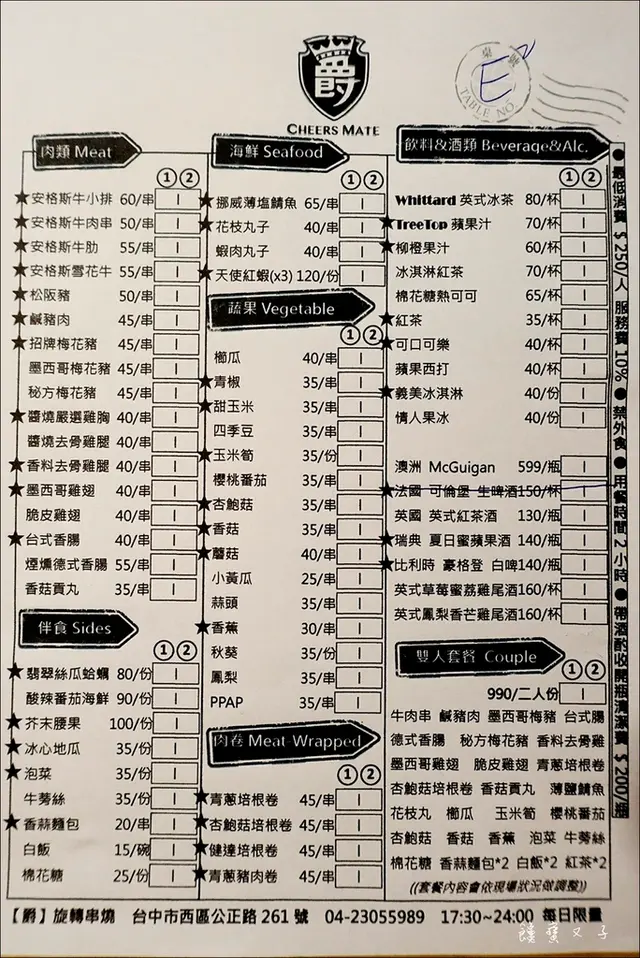 爵
CHEERS MATE
桌號
E
TABLE NO.
肉類 Meat
① ②
★安格斯牛小排 60/串
★安格斯牛肉串 50/串
★安格斯牛肋 55/串
★安格斯雪花牛 55/串
★松阪豬 50/串
★鹹豬肉 45/串
★招牌梅花豬 45/串
墨西哥梅花豬 45/串
秘方梅花豬 45/串
★醬燒嚴選雞胸 40/串
醬燒去骨雞腿 40/串
★香料去骨雞腿 40/串
★墨西哥雞翅 40/串
脆皮雞翅 40/串
★台式香腸 40/串
煙燻德式香腸 55/串
香菇貢丸 35/串
伴食 Sides
① ②
★翡翠絲瓜蛤蠣 80/份
酸辣番茄海鮮 90/份
★芥末腰果 100/份
★冰心地瓜 35/份
★泡菜 35/份
牛蒡絲 35/份
★香蒜麵包 20/串
白飯 15/碗
棉花糖 25/份
海鮮 Seafood
① ②
★挪威薄塩鯖魚 65/串
★花枝丸子 40/串
蝦肉丸子 40/串
★天使紅蝦(x3) 120/份
蔬果 Vegetable
① ②
櫛瓜 40/串
★青椒 35/串
★甜玉米 35/串
四季豆 35/串
★玉米筍 35/份
櫻桃番茄 35/串
★杏鮑菇 35/串
★香菇 35/串
★蘑菇 40/串
小黃瓜 25/串
蒜頭 35/串
★香蕉 30/串
秋葵 35/份
鳳梨 35/串
PPAP 35/串
肉卷 Meat-Wrapped
① ②
★青蔥培根卷 45/串
★杏鮑菇培根卷 45/串
★健達培根卷 45/串
★青蔥豬肉卷 45/串
飲料&酒類 Beverage&Alc.
① ②
Whittard 英式冰茶 80/杯
★TreeTop 蘋果汁 70/杯
★柳橙果汁 60/杯
冰淇淋紅茶 70/杯
棉花糖熱可可 65/杯
★紅茶 35/杯
★可口可樂 40/杯
蘋果西打 40/杯
★義美冰淇淋 40/份
情人果冰 40/份
澳洲 McGuigan 599/瓶
★法國 可倫堡 生啤酒150/杯
英國 英式紅茶酒 130/瓶
★瑞典 夏日蜜蘋果酒 140/瓶
★比利時 豪格登 白啤140/瓶
英式草莓蜜荔雞尾酒160/杯
英式鳳梨香芒雞尾酒160/杯
雙人套餐 Couple
① ②
990/二人份
牛肉串 鹹豬肉 墨西哥梅豬 台式腸
德式香腸 秘方梅花豬 香料去骨雞
墨西哥雞翅 脆皮雞翅 青蔥培根卷
杏鮑菇培根卷 香菇貢丸 薄鹽鯖魚
花枝丸 櫛瓜 玉米筍 櫻桃番茄
杏鮑菇 香菇 香蕉 泡菜 牛蒡絲
棉花糖 香蒜麵包*2 白飯*2 紅茶*2
((套餐內容會依現場狀況做調整))
●最低消費$250/人 服務費10% ●禁外食 ●用餐時間2小時 ●帶酒酌收開瓶清潔費$200/瓶
【爵】旋轉串燒 台中市西區公正路 261 號 04-23055989 17:30~24:00 每日限量